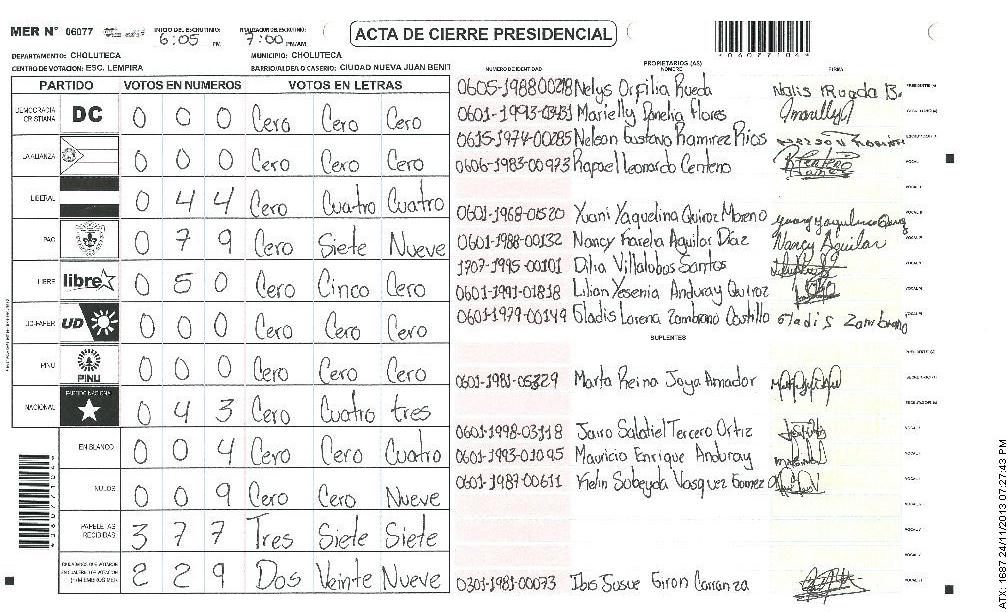 MER N° 06077 INICIO DEL ESCRUTINIO: 6:05 PM FINALIZACION DEL ESCRUTINIO: 7:00 PM/AM ACTA DE CIERRE PRESIDENCIAL
DEPARTAMENTO: CHOLUTECA MUNICIPIO: CHOLUTECA
CENTRO DE VOTACION: ESC. LEMPIRA BARRIO/ALDEA O CASERIO: CIUDAD NUEVA JUAN BENIT
PARTIDO VOTOS EN NUMEROS VOTOS EN LETRAS
DEMOCRACIA CRISTIANA DC 0 0 0 Cero Cero Cero
LA ALIANZA 0 0 0 Cero Cero Cero
LIBERAL 0 4 4 Cero Cuatro Cuatro
PAC 0 7 9 Cero Siete Nueve
LIBRE libre 0 5 0 Cero Cinco Cero
UD-FAPER UD 0 0 0 Cero Cero Cero
PINU PINU 0 0 0 Cero Cero Cero
NACIONAL PARTIDO NACIONAL 0 4 3 Cero Cuatro tres
EN BLANCO 0 0 4 Cero Cero Cuatro
NULOS 0 0 9 Cero Cero Nueve
PAPELETAS RECIBIDAS 3 7 7 Tres Siete Siete
2 2 9 Dos Veinte Nueve
PROPIETARIOS (AS)
NUMERO DE IDENTIDAD NOMBRE FIRMA
0605-1988-00218 Nelys Orfilia Rueda
0601-1993-03431 Marielly Fonelia Flores
0615-1974-00285 Nelson Gustavo Ramirez Rios
0606-1983-00973 Rafael Leonardo Centeno
0601-1968-01520 Yuani Yaquelina Quiroz Moreno
0601-1988-00132 Nancy Karela Aguilar Diaz Nancy Aguilar
1707-1995-00101 Dilia Villalobos Santos
0601-1991-01818 Lilian Yesenia Anduray Quiroz
0601-1979-00149 Gladis Lorena Zambrano Castillo Gladis Zambrano
SUPLENTES
0601-1981-05329 Marta Reina Joya Amador
0601-1998-03118 Jairo Salatiel Tercero Ortiz
0601-1993-01095 Mauricio Enrique Anduray
0601-1987-00611 Kelin Sobeyda Vasquez Gomez
0301-1981-00073 Ibis Josue Giron Carranza
ATX: 1687 24/11/2013 07:27:43 PM